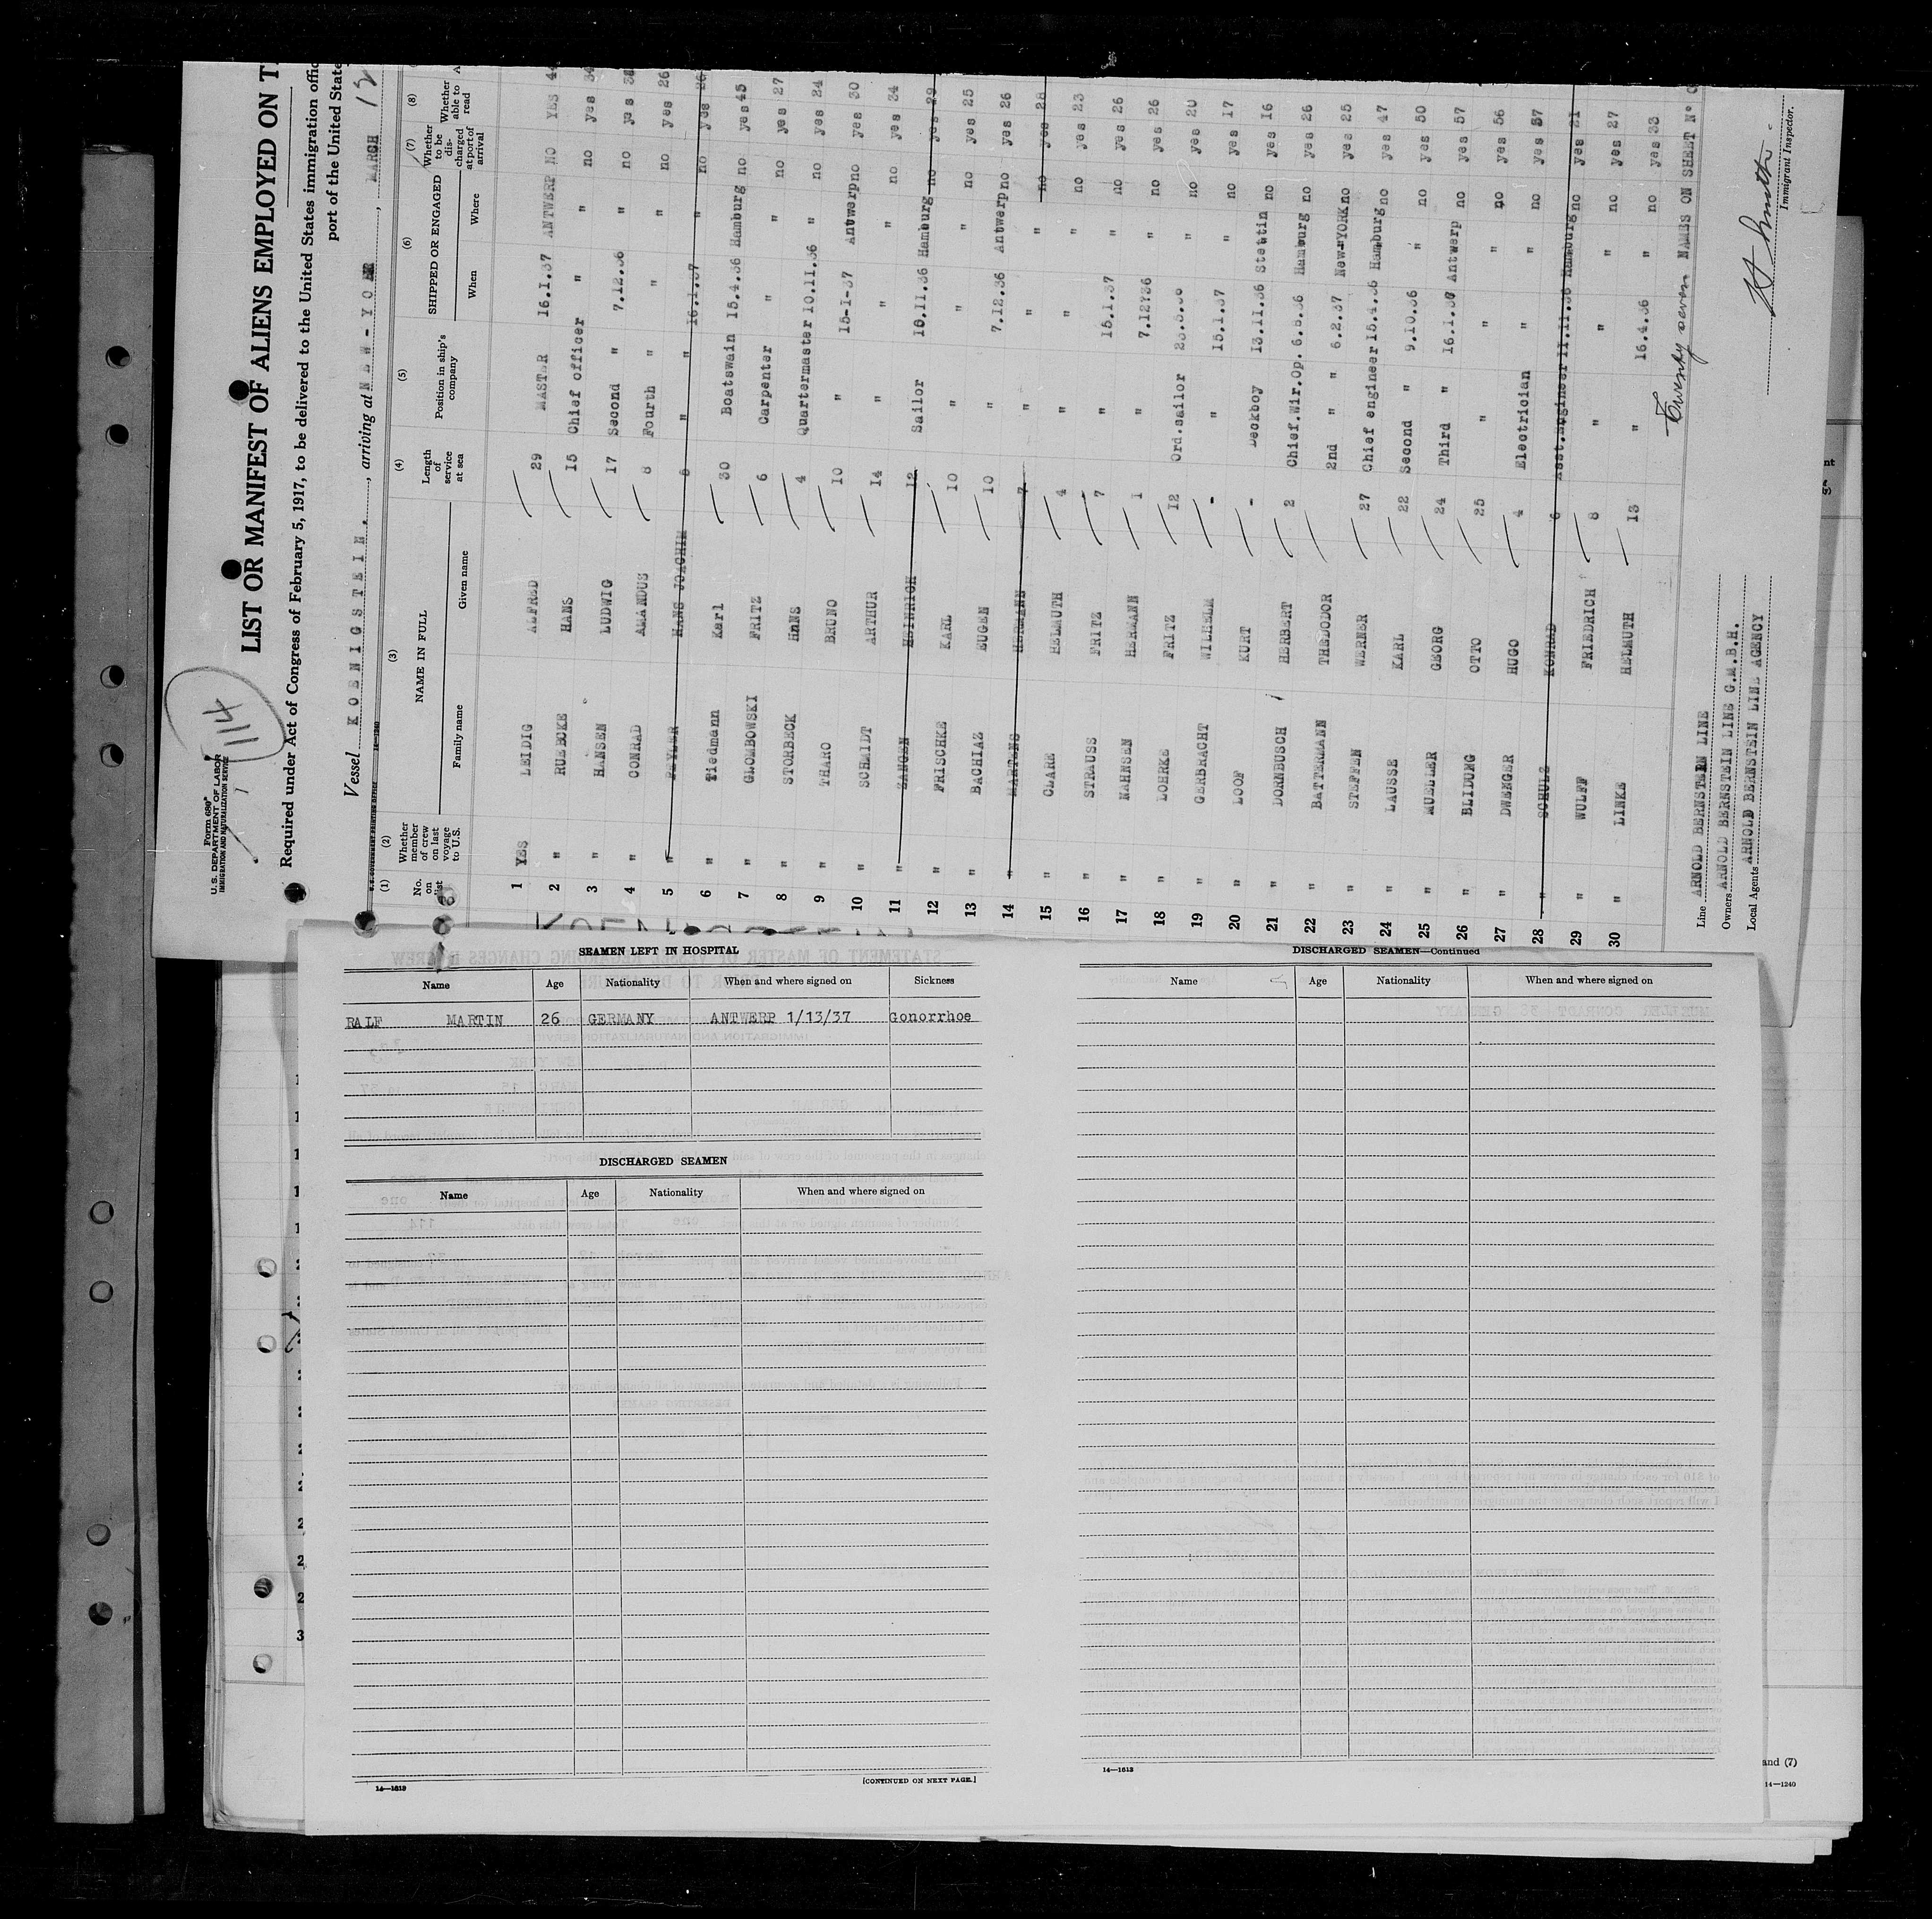 Form 680
U. S. DEPARTMENT OF LABOR
IMMIGRATION AND NATURALIZATION SERVICE
114
LIST OR MANIFEST OF ALIENS EMPLOYED ON T
Required under Act of Congress of February 5, 1917, to be delivered to the United States immigration offic
port of the United State
Vessel KOENIGSTEIN, arriving at NEW-YORK, MARCH 12
(1) (2) (3) (4) (5) (6) (7) (8)
No. on list Whether member of crew on last voyage to U.S. NAME IN FULL Family name Given name Length of service at sea Position in ship's company SHIPPED OR ENGAGED When Where Whether to be discharged at port of arrival Whether able to read
1 YES LEIDIG ALFRED 29 MASTER 16.1.37 ANTWERP NO YES 44
2 " RUEBCKE HANS 15 Chief officer " " no yes 34
3 " HANSEN LUDWIG 17 Second " 7.12.36 " no yes 38
4 " CONRAD AMANDUS 8 Fourth " " " no yes 26
5 " HANS JOACHIM 6 " 16.1.37 " no yes 26
6 " Tiedmann Karl 30 Boatswain 15.4.36 Hamburg no yes 45
7 " GLOMBOWSKI FRITZ 6 Carpenter " " no yes 27
8 " STORBECK HANS 4 Quartermaster 10.11.36 " no yes 24
9 " THARO BRUNO 10 " 15-1-37 Antwerp no yes 30
10 " SCHMIDT ARTHUR 14 " " " no yes 34
11 " ZANGEN HEINRICH 12 Sailor 18.11.36 Hamburg no yes 29
12 " FRISCHKE KARL 10 " " " no yes 25
13 " BACHIAZ EUGEN 10 " 7.12.36 Antwerp no yes 26
14 " MARTENS HERMANN 7 " " " no yes 28
15 " CLARE HELMUTH 4 " " " no yes 23
16 " STRAUSS FRITZ 7 " 15.1.37 " no yes 26
17 " NAHNSEN HERMANN 1 " 7.12?36 " no yes 26
18 " LOHRKE FRITZ 12 Ord.sailor 23.5.36 " no yes 20
19 " GERBRACHT WILHELM - " 15.1.37 " no yes 17
20 " LOOF KURT - Deckboy 13.11.36 Stettin no yes 16
21 " DORNBUSCH HERBERT 2 Chief.Wir.Op. 6.8.36 Hamburg no yes 26
22 " BATTERMANN THEDODOR 2nd " 6.2.37 New-YORK no yes 25
23 " STEFFEN WERNER 27 Chief engineer 15.4.36 Hamburg no yes 47
24 " LAUSSE KARL 22 Second " 9.10.36 " no yes 50
25 " MUELLER GEORG 24 Third " 16.1.37 Antwerp no yes 57
26 " BLIDUNG OTTO 25 " " " no yes 56
27 " DWENGER HUGO 4 Electrician " " no yes 37
28 " SCHULZ KONRAD 6 Asst.engineer 11.11.36 Hamburg no yes 21
29 " WULFF FRIEDRICH 8 " " " no yes 27
30 " LINKE HELMUTH 13 " 16.4.36 " no yes 33
Twenty seven NAMES ON SHEET N°
Line ARNOLD BERNSTEIN LINE
Owners ARNOLD BERNSTEIN LINE G.M.B.H.
Local Agents ARNOLD BERNSTEIN LINE AGENCY
Immigrant Inspector.
SEAMEN LEFT IN HOSPITAL
Name Age Nationality When and where signed on Sickness
RALF MARTIN 26 GERMANY ANTWERP 1/13/37 Gonorrhoe
DISCHARGED SEAMEN
Name Age Nationality When and where signed on
14—1613
[CONTINUED ON NEXT PAGE.]
DISCHARGED SEAMEN—Continued
Name Age Nationality When and where signed on
14—1613
and (7)
14—1240